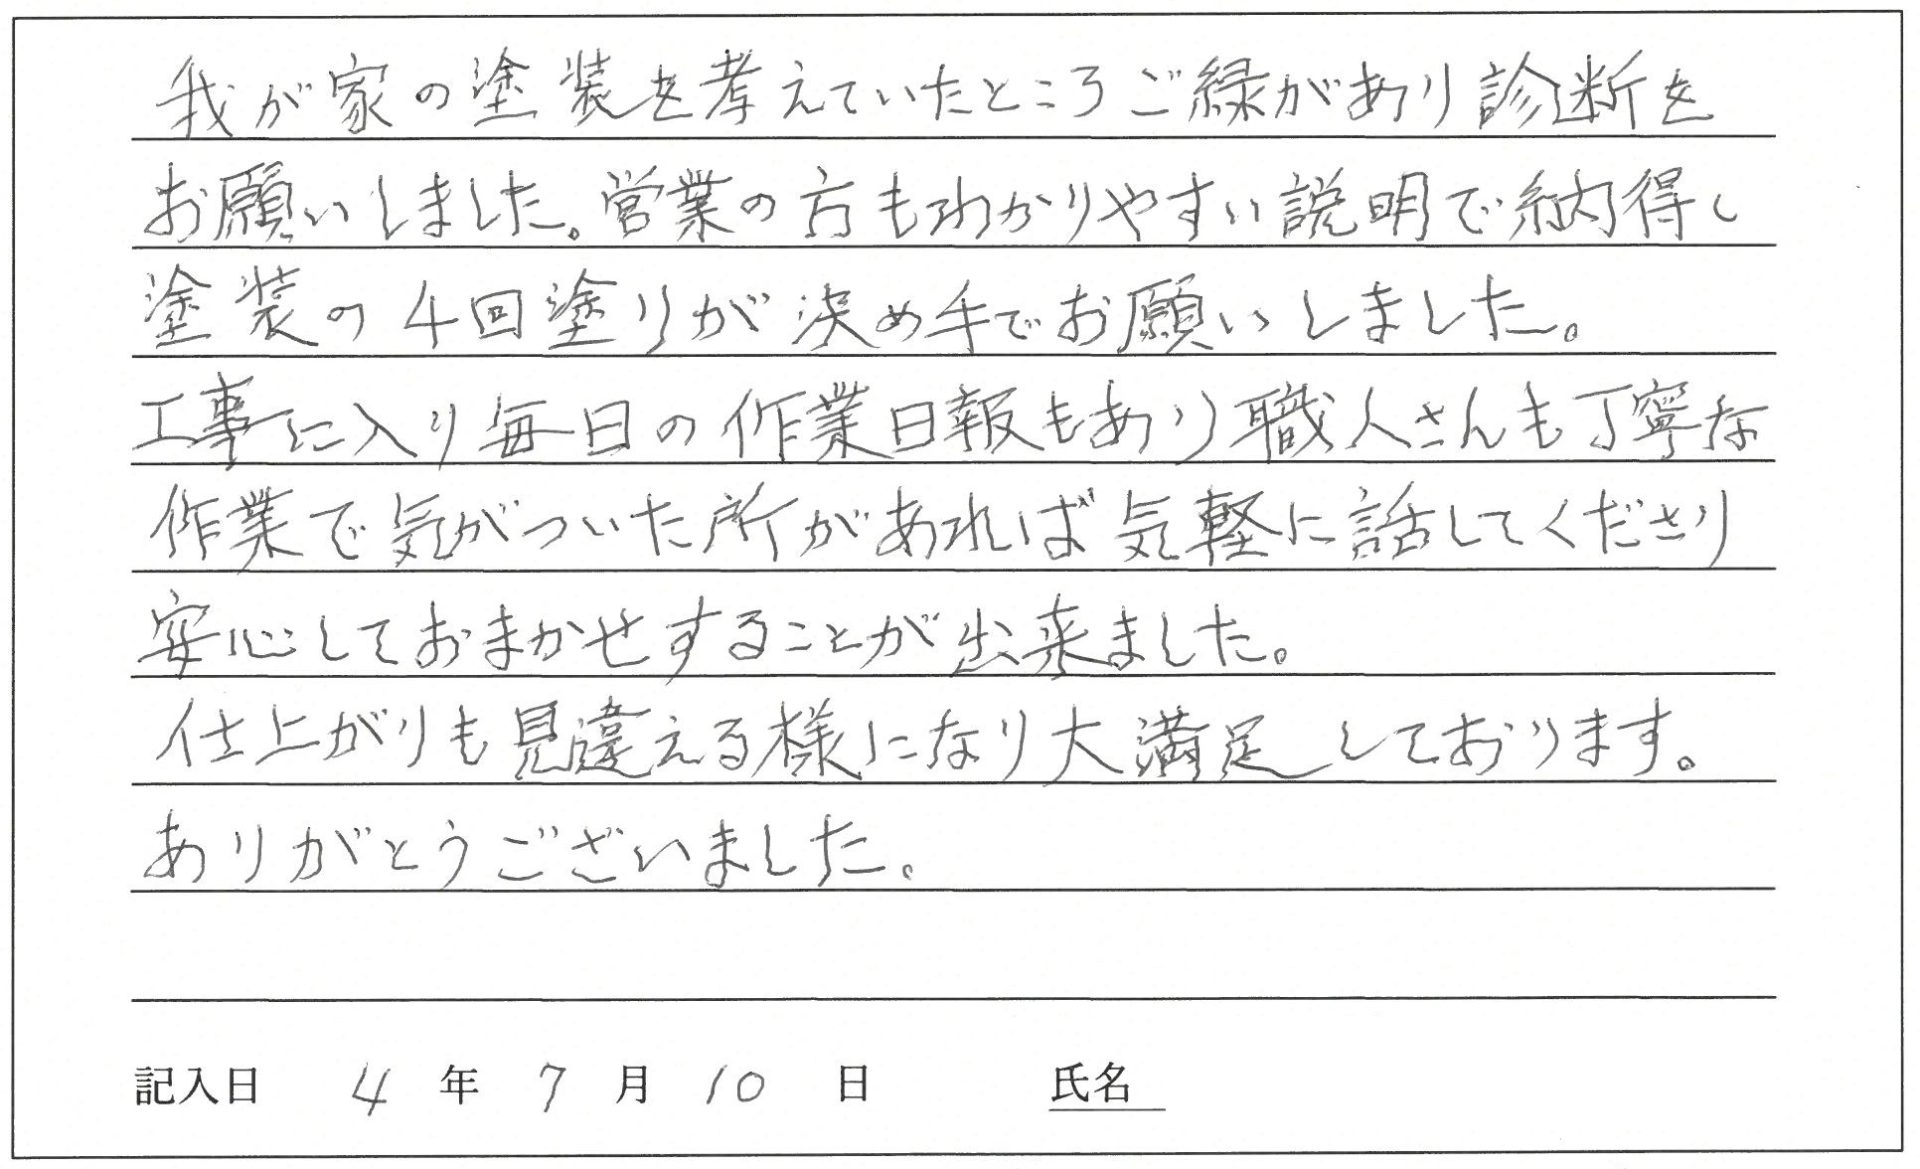 我が家の塗装を考えていたところご縁があり診断を
お願いしました。営業の方もわかりやすい説明で納得し
塗装の4回塗りが決め手でお願いしました。
工事に入り毎日の作業日報もあり職人さんも丁寧な
作業で気がついた所があれば気軽に話してくださり
安心しておまかせすることが出来ました。
仕上がりも見違える様になり大満足しております。
ありがとうございました。
記入日 4 年 7 月 10 日 氏名